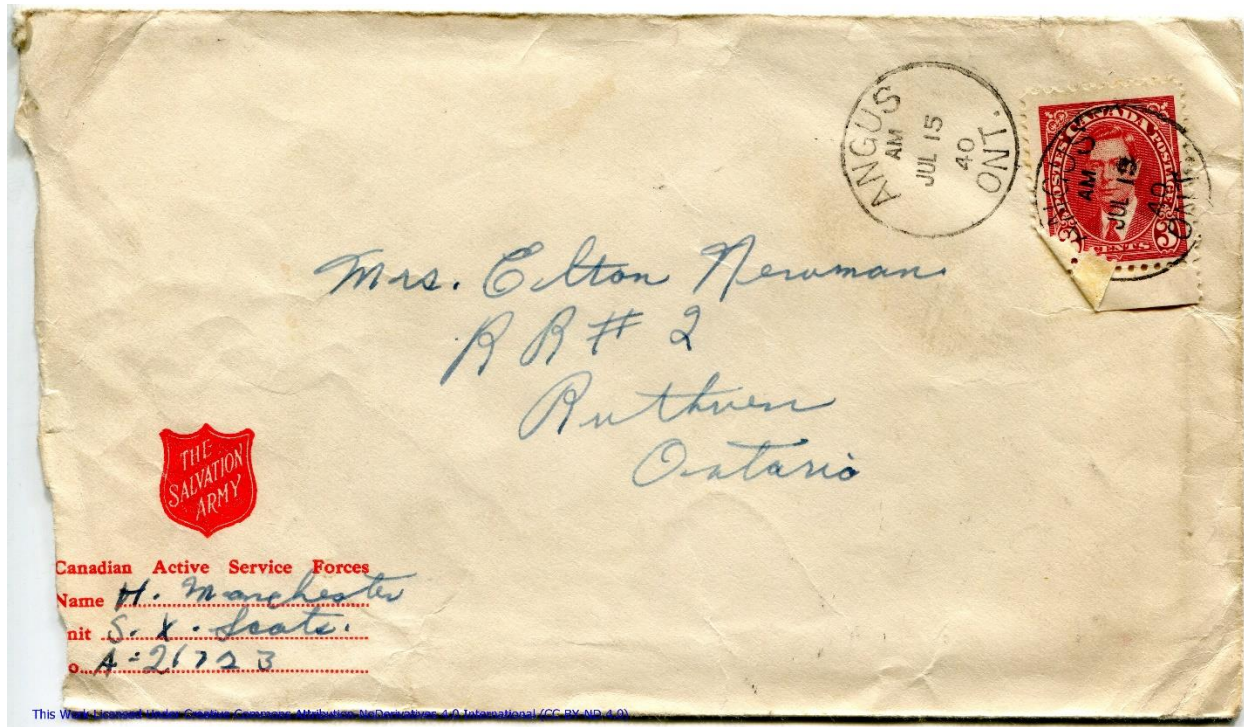 ANGUS
AM
JUL 15
40
ONT.
POSTES CANADA POSTAGE
3 CENTS 3
ANGUS
AM
JUL 15
40
ONT.
Mrs. Elton Newman
R R # 2
Ruthven
Ontario
THE
SALVATION
ARMY
Canadian Active Service Forces
Name H. Manchester
nit S. X. Scots.
o. A-21723
This Work Licensed Under Creative Commons Attribution-NoDerivatives 4.0 International (CC BY-ND 4.0)